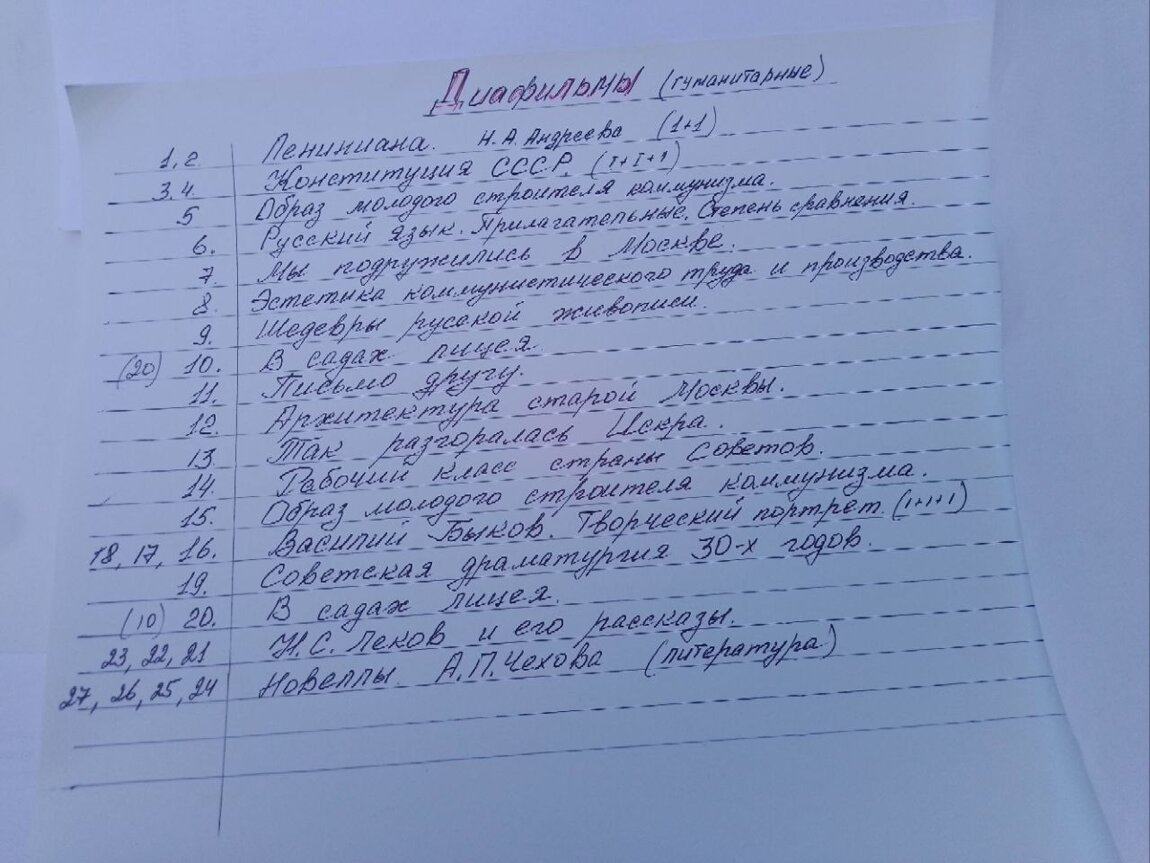 Диафильмы (гуманитарные)
1, 2 Лениниана. Н.А. Андреева (1+1)
3.4. Конституция СССР. (1+1+1)
5 Образ молодого строителя коммунизма.
6. Русский язык. Прилагательные. Степень сравнения.
7. Мы подружились в Москве.
8. Эстетика коммунистического труда и производства.
9. Шедевры русской живописи.
(20) 10. В садах лицея.
11. Письмо другу.
12. Архитектура старой Москвы.
13 Так разгоралась Искра.
14. Рабочий класс страны Советов.
15. Образ молодого строителя коммунизма.
18, 17, 16. Василий Быков. Творческий портрет (1+1+1)
19. Советская драматургия 30-х годов.
(10) 20. В садах лицея.
23, 22, 21 Н.С. Леков и его рассказы.
27, 26, 25, 24 Новеллы А.П. Чехова (литература)